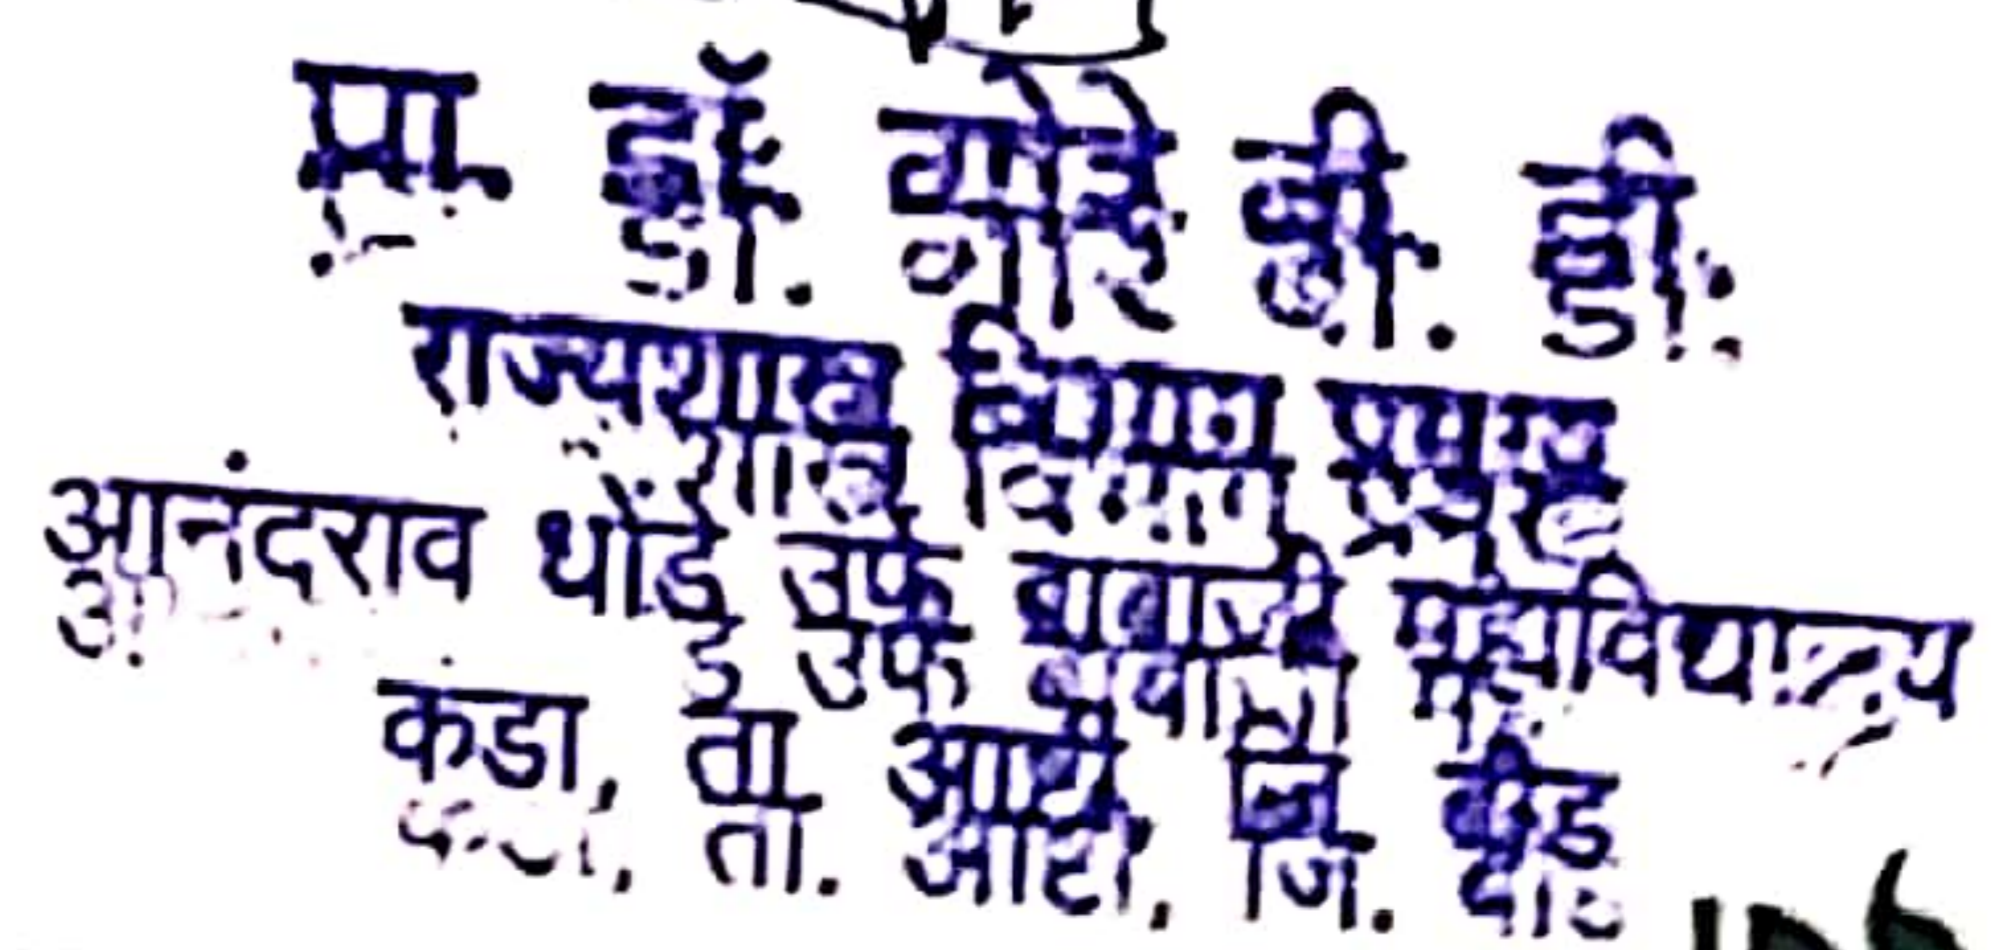 प्रा. डॉ. मोरे डी. डी.
राज्यशास्त्र विभाग प्रमुख
आनंदराव धोंडे उर्फ बाबाजी महाविद्यालय
कडा, ता. आष्टी, जि. बीड